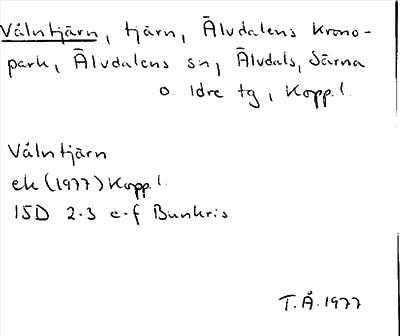 Vålntjärn, tjärn, Älvdalens Krono-
park, Älvdalens sn, Älvdals, Särna
o. Idre tg, Kopp.l.
Vålntjärn
ek (1977) Kopp.l.
15D 2-3 e-f Bunkris
T.Å. 1977